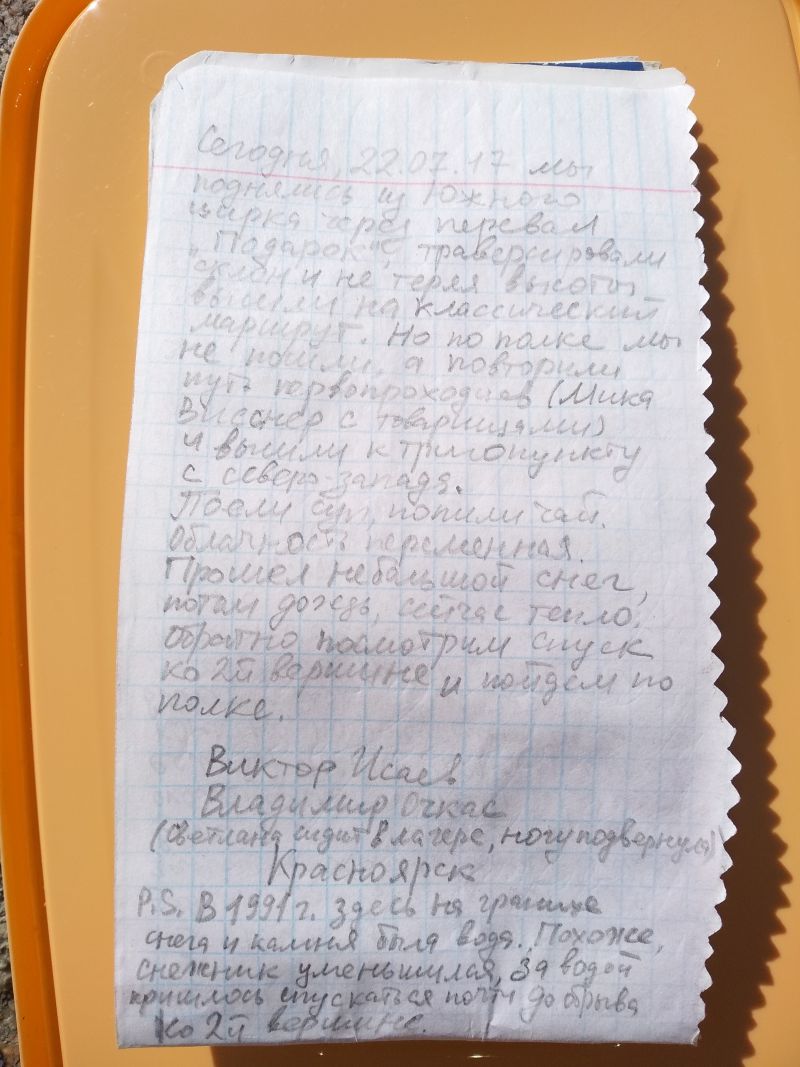 Сегодня, 22.07.17 мы
поднялись из Южного
цирка через перевал
"Подарок", траверсировали
склон и не теряя высоты
вышли на классический
маршрут. Но по полке мы
не пошли, а повторили
путь первопроходцев (Мика
Висснер с товарищами)
и вышли к тригопункту
с северо-запада.
Поели суп, попили чай.
Облачность переменная.
Прошел небольшой снег,
потом дождь, сейчас тепло.
Обратно посмотрим спуск
ко 2й вершине и пойдем по
полке.
Виктор Исаев
Владимир Очкас
(Светлана сидит в лагере, ногу подвернула)
Красноярск
P.S. В 1991г. здесь на границе
снега и камня была вода. Похоже,
снежник уменьшился, за водой
пришлось спускаться почти до обрыва
ко 2й вершине.